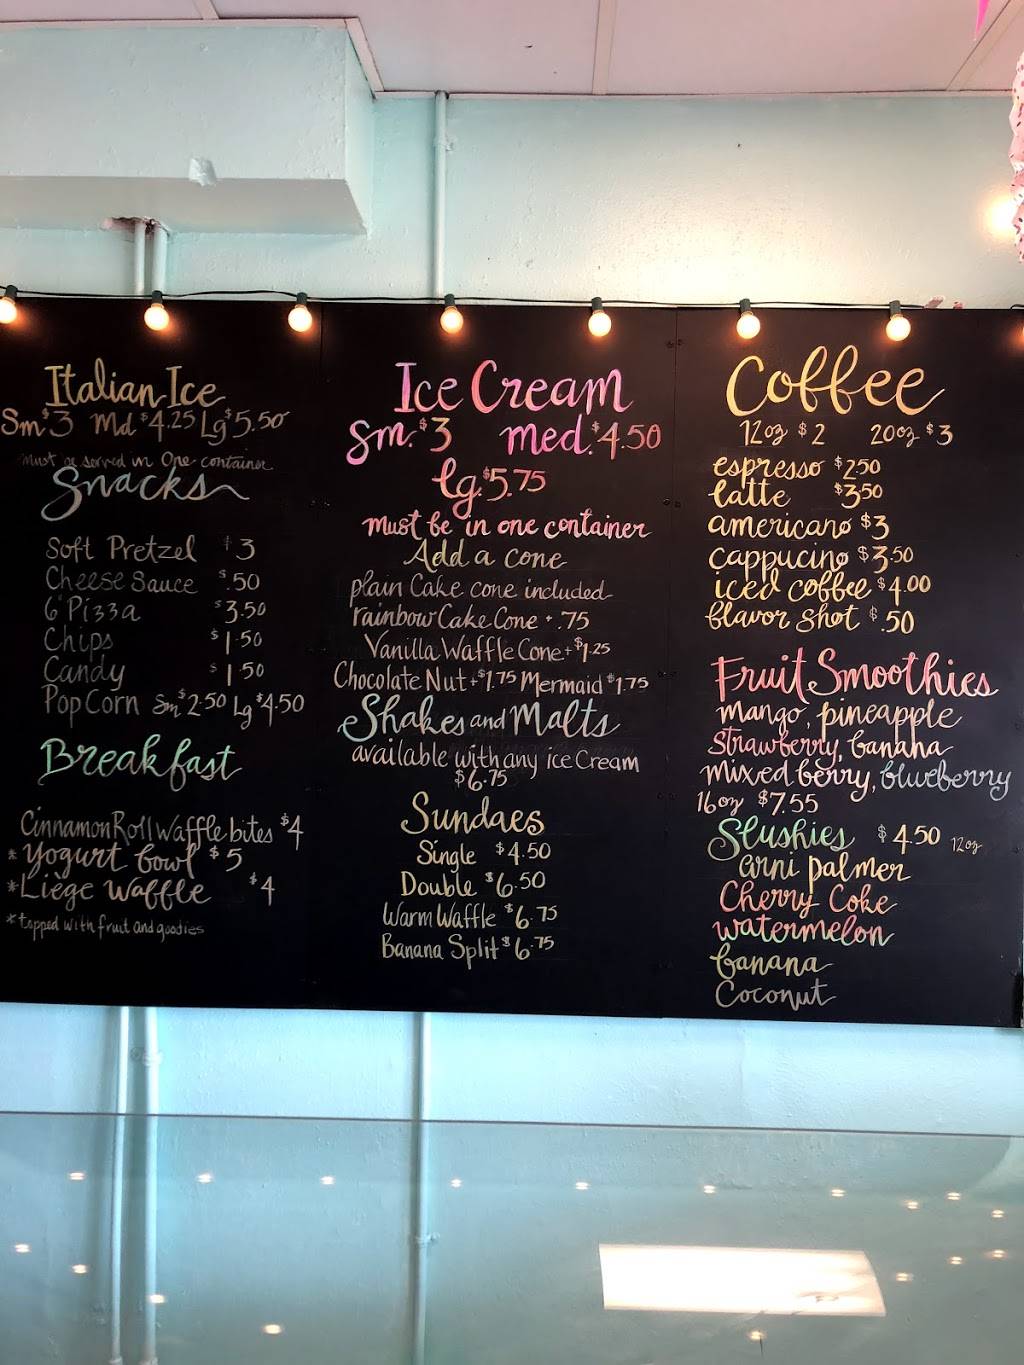 Italian Ice
Sm $3 Md $4.25 Lg $5.50
must be served in One container
Snacks
Soft Pretzel $3
Cheese Sauce $.50
6" Pizza $3.50
Chips $1.50
Candy $1.50
Pop Corn Sm $2.50 Lg $4.50
Breakfast
Cinnamon Roll Waffle bites $4
* Yogurt bowl $5
* Liège Waffle $4
* topped with fruit and goodies
Ice Cream
Sm. $3 med. $4.50
lg. $5.75
must be in one container
Add a cone
plain Cake cone included
rainbow Cake Cone + .75
Vanilla Waffle Cone + $1.25
Chocolate Nut + $1.75 Mermaid $1.75
Shakes and Malts
available with any ice Cream
$6.75
Sundaes
Single $4.50
Double $6.50
Warm Waffle $6.75
Banana Split $6.75
Coffee
12oz $2 20oz $3
espresso $2.50
latte $3.50
americano $3
cappucino $3.50
iced coffee $4.00
flavor shot $.50
Fruit Smoothies
mango, pineapple
Strawberry, banana
mixed berry, blueberry
16oz $7.55
Slushies $4.50 12oz
arni palmer
Cherry Coke
watermelon
banana
Coconut